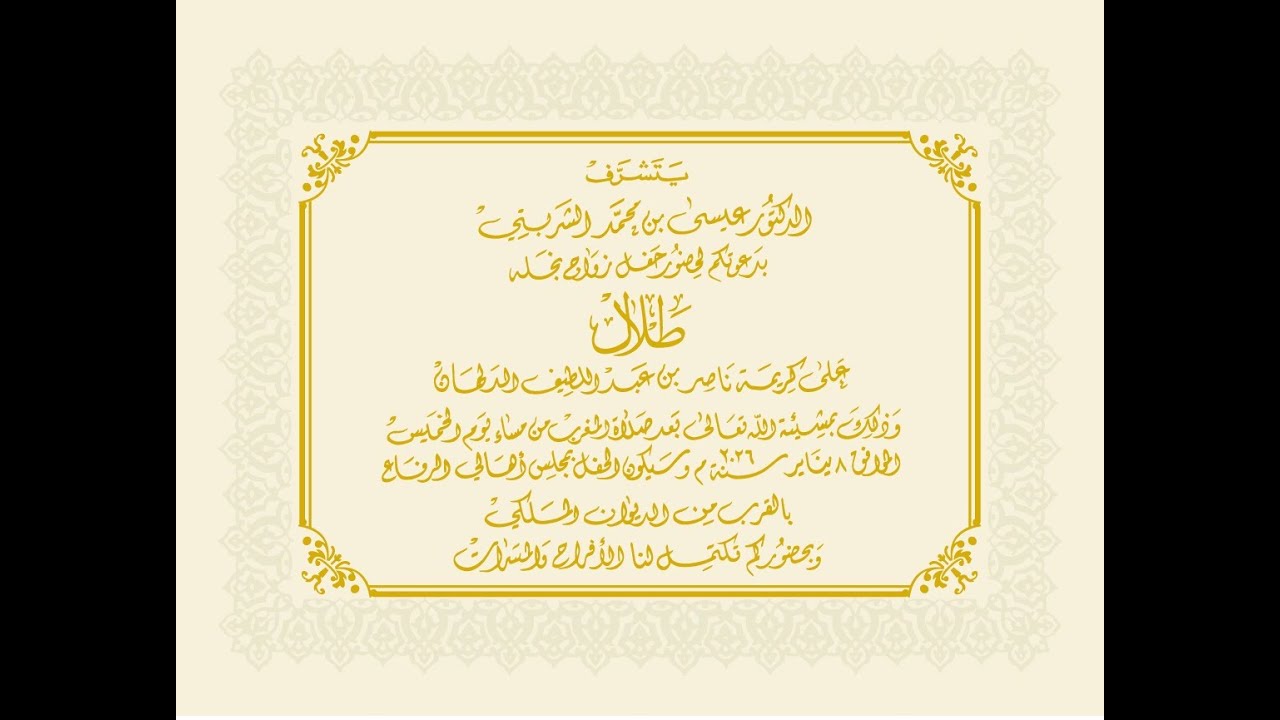 يَتَشَرَّفْ
الدكتُور عيسىٰ بن محمَّد الشَربتيْ
بدَعوتكم لحضُور حَفل زوَاج نجَله
طَلَالْ
عَلىٰ كريمَة نَاصِر بن عَبدْ اللطيف الدَلهَانْ
وَذٰلكَ بمشِيئة اللّه تعَالىٰ بَعد صَلَاة المغربْ من مسَاءِ يَوم الخمَيسْ
الموَافقْ ٨ ينَاير سنة ٢٠٢٦ م وسَيكون الحفل بمجلس أهَالي الرفاع
بالقرب من الديوَان الملَكيْ
وَبحضُوركم تكتمِل لنا الأفراح وَالمسَرات